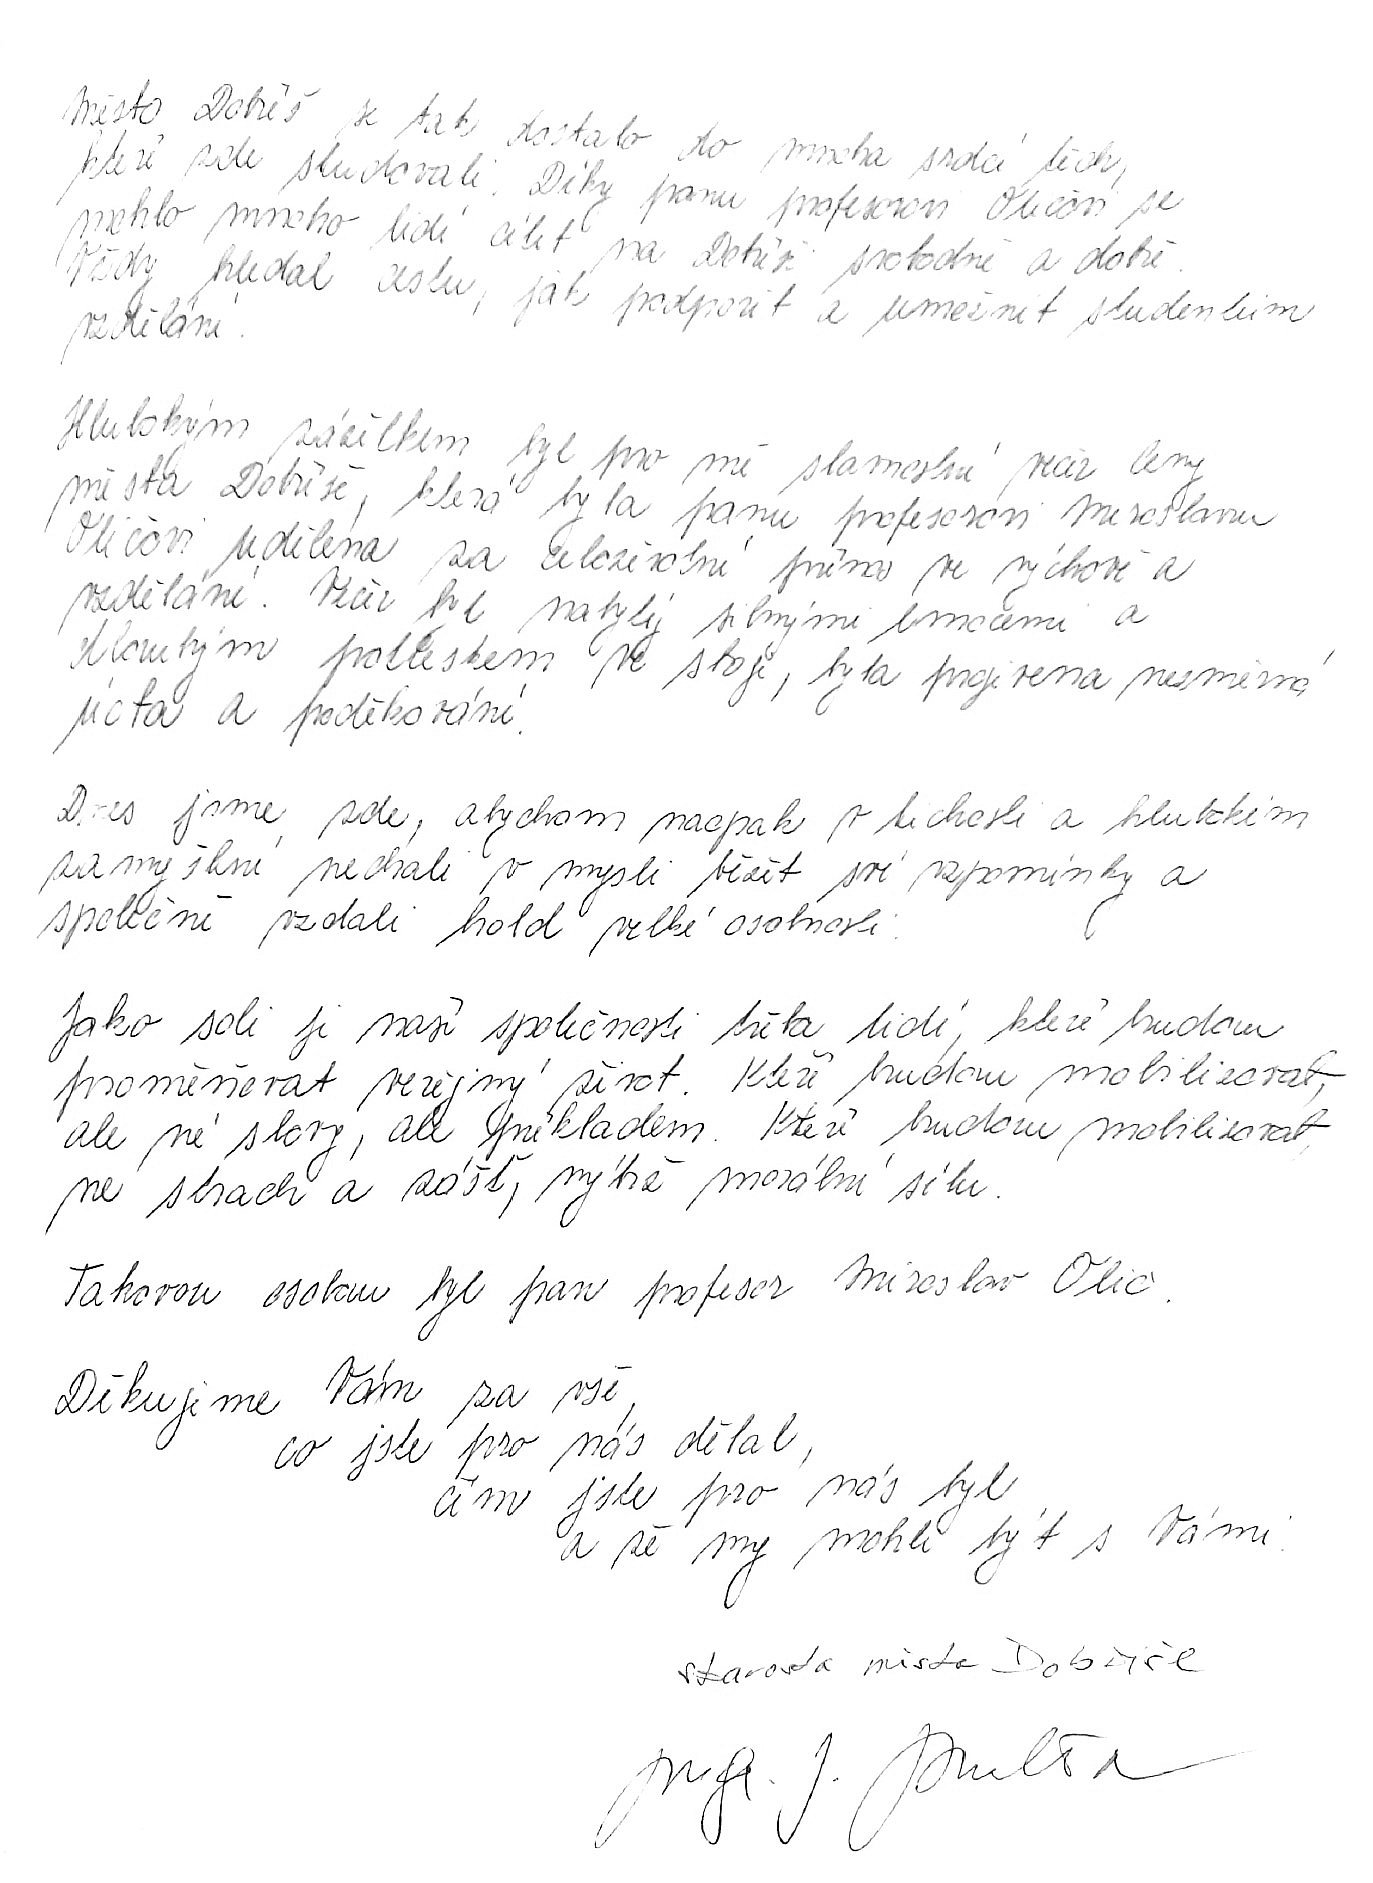 Město Dobříš se tak dostalo do mnoha srdcí těch,
kteří zde studovali. Díky panu profesorovi Oličovi se
mohlo mnoho lidí cítit na Dobříši svobodně a dobře.
Vždy hledal cestu, jak podpořit a umožnit studentům
vzdělání.
Hlubokým zážitkem byl pro mě slavnostní večer Ceny
města Dobříše, která byla panu profesorovi Miroslavu
Oličovi udělena za celoživotní přínos ve výchově a
vzdělání. Večer byl nabylý silnými emocemi a
dlouhým potleskem ve stoje, byla projevena nesmírná
úcta a poděkování.
Dnes jsme zde, abychom naopak v tichosti a hlubokém
zamyšlení nechali v mysli běžet své vzpomínky a
společně vzdali hold velké osobnosti.
Jako soli je naší společnosti třeba lidí, kteří budou
proměňovat veřejný život. Kteří budou mobilizovat,
ale né slovy, ale příkladem. Kteří budou mobilizovat,
ne strach a zášť, nýbrž morální sílu.
Takovou osobou byl pan profesor Miroslav Olič.
Děkujeme Vám za vše,
co jste pro nás dělal,
čím jste pro nás byl
a že my mohli být s Vámi.
starosta města Dobříše
Mgr. J.